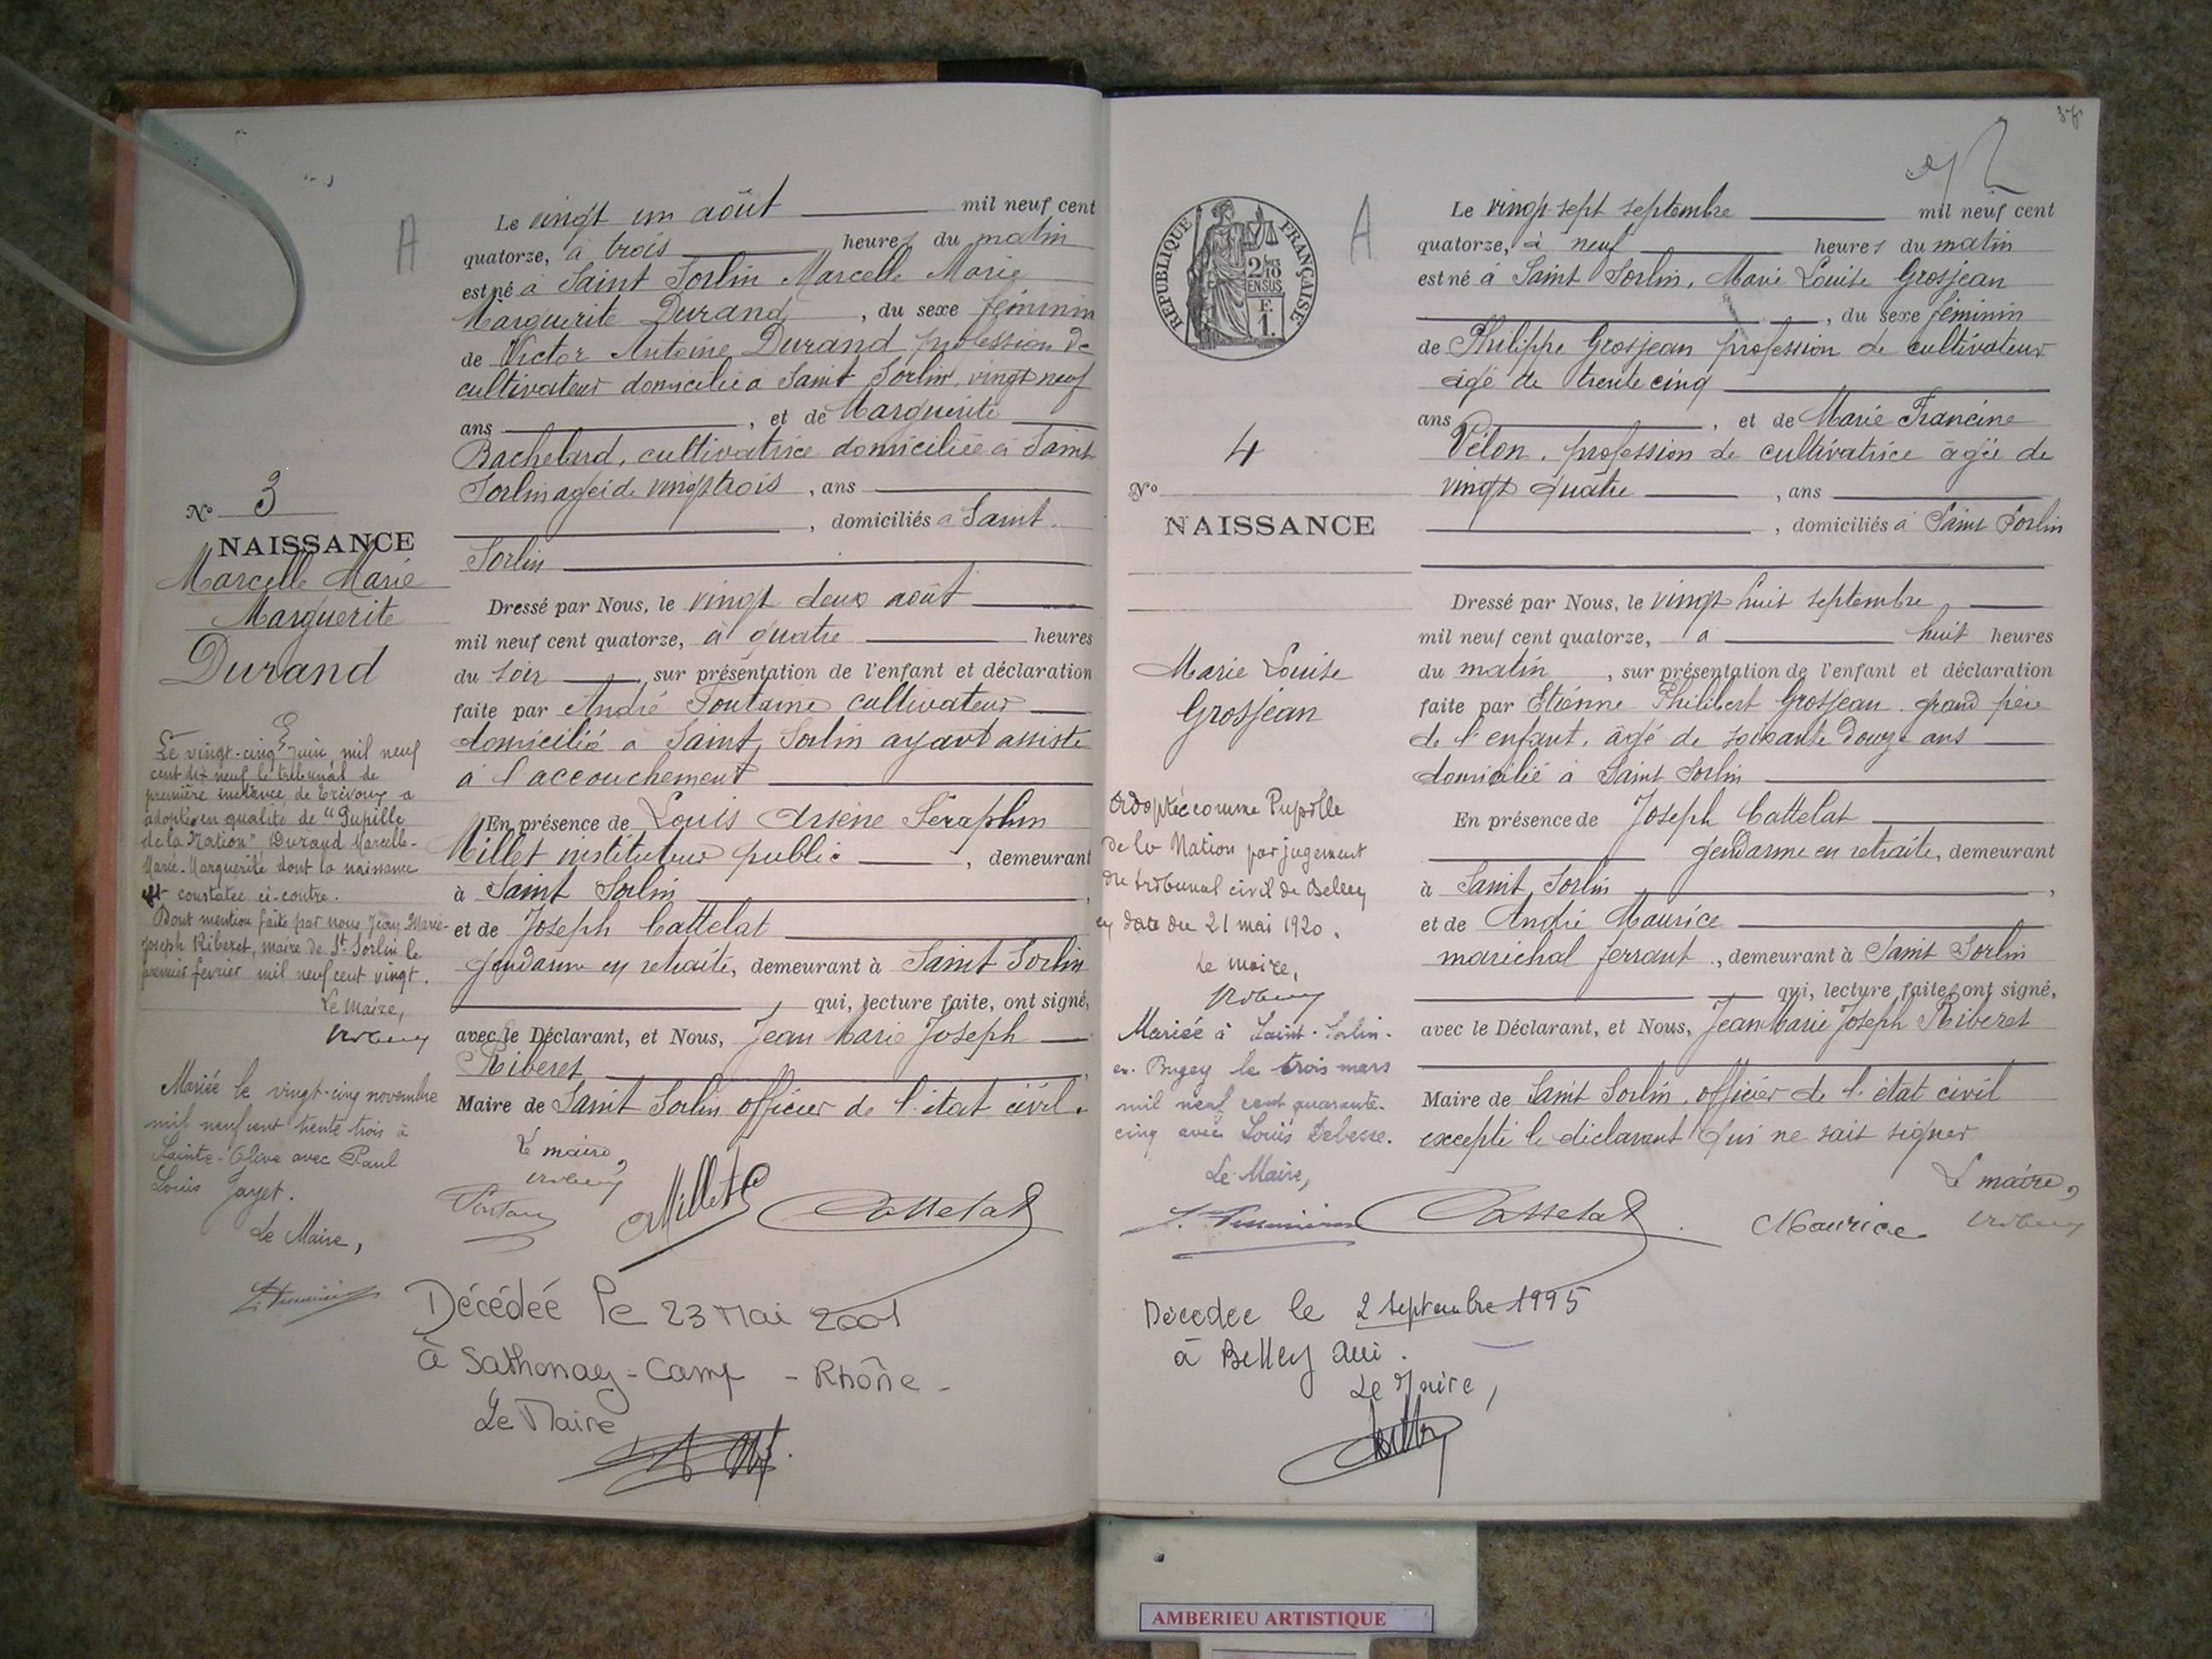 A
Le vingt un août mil neuf cent
quatorze, à trois heures du matin
est né à Saint Sorlin Marcelle Marie
Marguerite Durand, du sexe féminin
de Victor Antoine Durand profession de
cultivateur domicilié à Saint Sorlin, vingt neuf
ans, et de Marguerite
Bachelard, cultivatrice domiciliée à Saint
Sorlin agée de vingt trois, ans
, domiciliés à Saint
Sorlin
Dressé par Nous, le vingt deux août
mil neuf cent quatorze, à quatre heures
du soir, sur présentation de l'enfant et déclaration
faite par André Fontaine cultivateur
domicilié à Saint Sorlin ayant assisté
à l'accouchement
En présence de Louis Arsène Séraphin
Millet instituteur public, demeurant
à Saint Sorlin,
et de Joseph Cattelat
gendarme en retraite, demeurant à Saint Sorlin
qui, lecture faite, ont signé,
avec le Déclarant, et Nous, Jean Marie Joseph
Riberet,
Maire de Saint Sorlin officier de l'état civil.
Le maire,
Millet
Cattelat
Décédée le 23 Mai 2001
à Sathonay-Camp - Rhône -
Le Maire
No 3
NAISSANCE
Marcelle Marie
Marguerite
Durand
Le vingt-cinq Juin mil neuf
cent dix neuf le tribunal de
première instance de Trévoux a
adopté en qualité de "Pupille
de la Nation" Durand Marcelle-
Marie-Marguerite dont la naissance
est constatée ci-contre.
Dont mention faite par nous Jean-Marie-
Joseph Riberet, maire de St Sorlin le
premier février mil neuf cent vingt.
Le maire,
Mariée le vingt-cinq novembre
mil neuf cent trente trois à
Sainte-Olive avec Paul
Louis Jayet.
Le Maire,
RÉPUBLIQUE FRANÇAISE
2/10
EN SUS
F.
1.
A
Le vingt sept septembre mil neuf cent
quatorze, à neuf heures du matin
est né à Saint Sorlin, Marie Louise Grosjean
, du sexe féminin
de Philippe Grosjean profession de cultivateur
âgé de trente cinq
ans, et de Marie Francine
Vélon, profession de cultivatrice âgée de
vingt quatre, ans
, domiciliés à Saint Sorlin
Dressé par Nous, le vingt huit septembre
mil neuf cent quatorze, à huit heures
du matin, sur présentation de l'enfant et déclaration
faite par Etienne Philibert Grosjean grand père
de l'enfant, âgé de soixante douze ans
domicilié à Saint Sorlin
En présence de Joseph Cattelat
gendarme en retraite, demeurant
à Saint Sorlin,
et de André Maurice
maréchal ferrant, demeurant à Saint Sorlin
qui, lecture faite, ont signé,
avec le Déclarant, et Nous, Jean Marie Joseph Riberet
Maire de Saint Sorlin, officier de l'état civil
excepté le déclarant qui ne sait signer
Le maire,
Cattelat
Maurice
Décédée le 2 septembre 1995
à Belley Ain.
Le Maire,
No 4
NAISSANCE
Marie Louise
Grosjean
Adoptée comme Pupille
de la Nation par jugement
du tribunal civil de Belley
en date du 21 mai 1920.
Le maire,
Mariée à Saint-Sorlin-
en-Bugey le trois mars
mil neuf cent quarante-
cinq avec Louis Debesse.
Le Maire,
AMBERIEU ARTISTIQUE